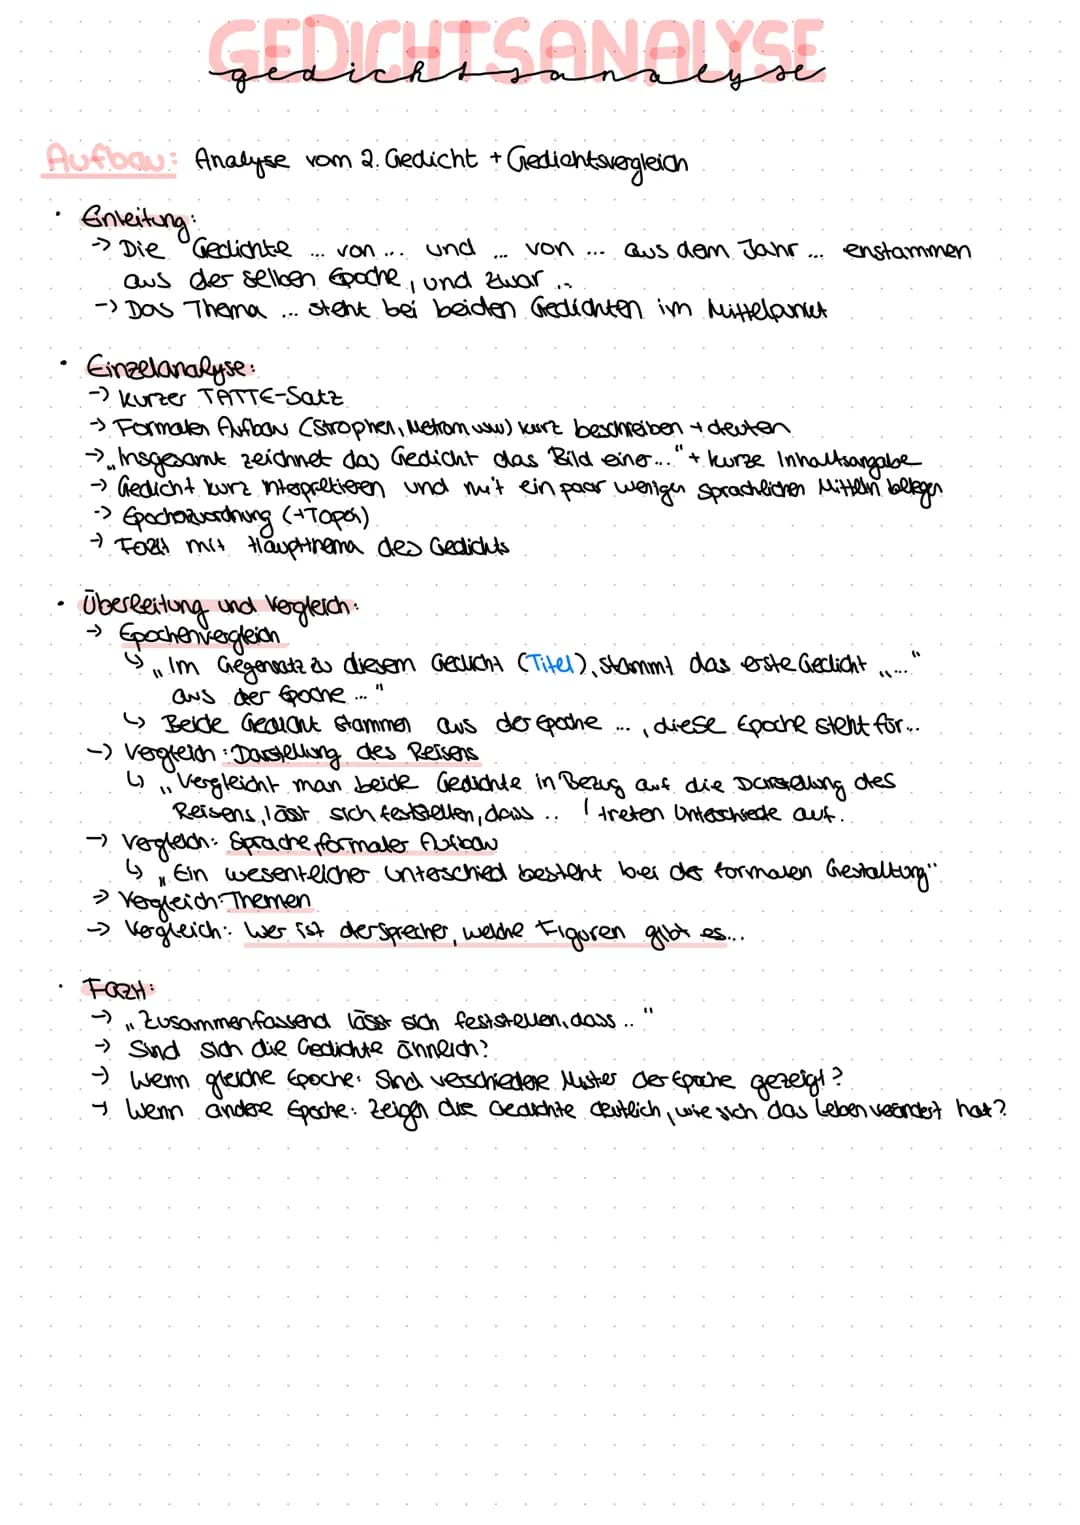 GEDICHTSANALYSE
gedichtsanalyse
Aufbau: Analyse vom 2. Gedicht + Gedichtsvergleich
• Einleitung:
→ Die Gedichte ... von ... und ... von ... aus dem Jahr ... enstammen
aus der selben Epoche, und zwar ...
→ Das Thema ... steht bei beiden Gedichten im Mittelpunkt
• Einzelanalyse:
→ kurzer TATTE-Satz
→ Formalen Aufbau (Strophen, Metrum usw) kurz beschreiben + deuten
→ „Insgesamt zeichnet das Gedicht das Bild einer..." + kurze Inhaltsangabe
→ Gedicht kurz interpretieren und mit ein paar wenigen sprachlichen Mitteln belegen
→ Epochezuordnung (+Topoi)
→ Fazit mit Hauptthema des Gedichts
• Überleitung und Vergleich:
→ Epochenvergleich
↳ „Im Gegensatz zu diesem Gedicht (Titel), stammt das erste Gedicht „..."
aus der Epoche ..."
↳ Beide Gedicht stammen aus der Epoche ..., diese Epoche steht für...
→ Vergleich: Darstellung des Reisens
↳ „Vergleicht man beide Gedichte in Bezug auf die Darstellung des
Reisens, lässt sich feststellen, dass .. / treten Unterschiede auf.
→ Vergleich: Sprache, formaler Aufbau
↳ „Ein wesentlicher Unterschied besteht bei der formalen Gestaltung"
→ Vergleich: Themen
→ Vergleich: Wer ist der Sprecher, welche Figuren gibt es...
• Fazit:
→ „Zusammenfassend lässt sich feststellen, dass .."
→ Sind sich die Gedichte ähnlich?
→ Wenn gleiche Epoche: Sind verschiedene Muster der Epoche gezeigt?
→ Wenn andere Epoche: Zeigen die Gedichte deutlich, wie sich das Leben verändert hat?